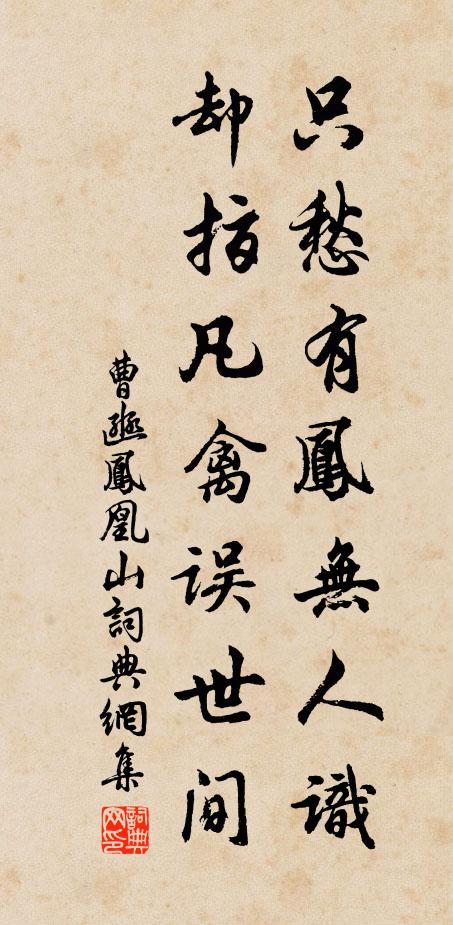 只愁有鳳無人識
却指凡禽误世间
曹鳳凰山詞典網集
詞典
网印